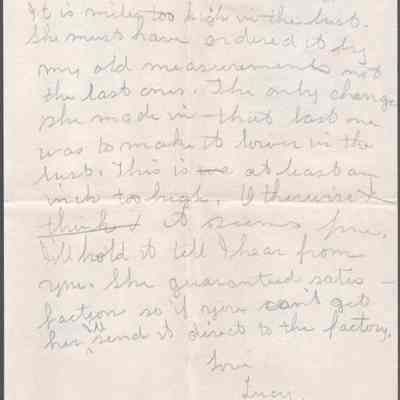 It is miles too high in the bust.
She must have ordered it by
my old measurements not
the last ones. The only change
she made in - that last one
was to make it lower in the
bust. This is at least an
inch too high. Otherwise
think I it seems fine.
I'll hold it till I hear from
you. She guaranteed satis-
faction so if you can't get
her, I'll send it direct to the factory.
Love
Lucy.